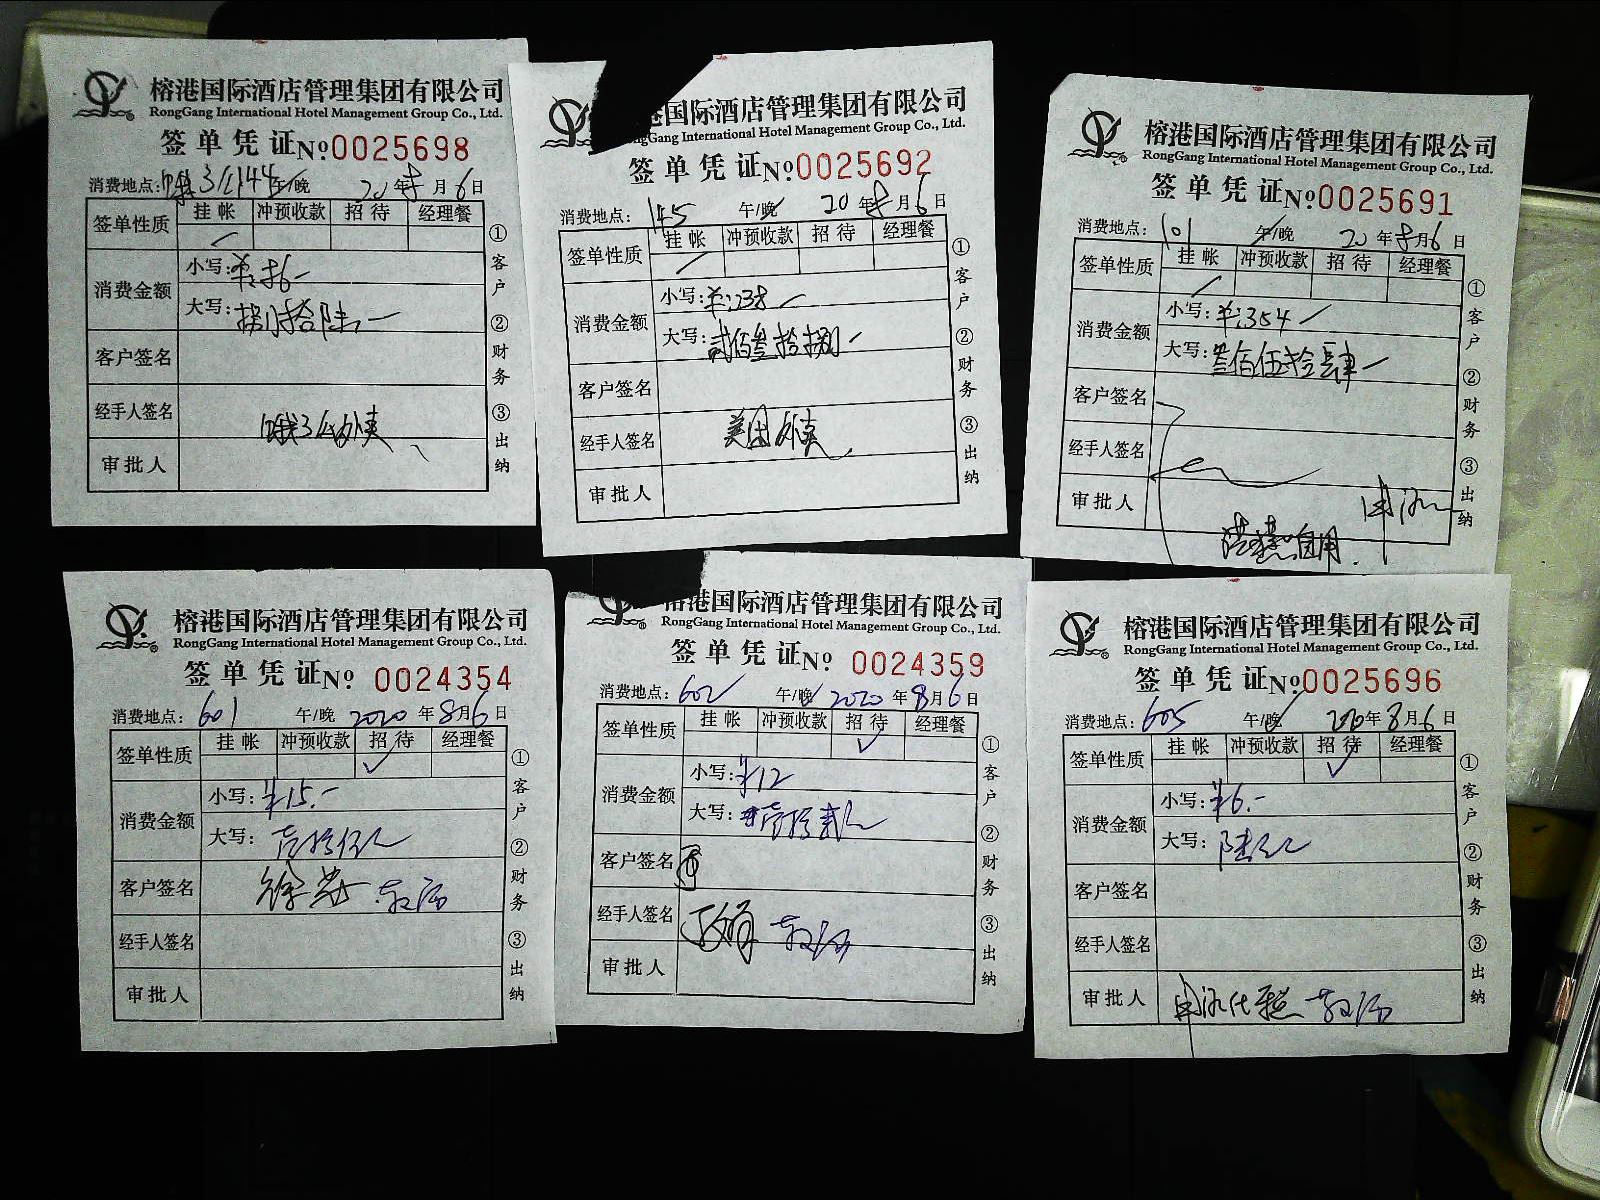 榕港国际酒店管理集团有限公司
RongGang International Hotel Management Group Co., Ltd.
签单凭证 №0025698
消费地点: 144 午/晚 20年8月6日
签单性质 挂帐 冲预收款 招待 经理餐
消费金额 小写:
大写: 捌拾陆
客户签名
经手人签名 外卖
审批人
①客户 ②财务 ③出纳
港国际酒店管理集团有限公司
Gang International Hotel Management Group Co., Ltd.
签单凭证 №0025692
消费地点: 145 午/晚 20年8月6日
签单性质 挂帐 冲预收款 招待 经理餐
消费金额 小写: ¥:238
大写: 贰佰叁拾捌
客户签名
经手人签名 美团外卖
审批人
①客户 ②财务 ③出纳
榕港国际酒店管理集团有限公司
RongGang International Hotel Management Group Co., Ltd.
签单凭证 №0025691
消费地点: 101 午/晚 20年8月6日
签单性质 挂帐 冲预收款 招待 经理餐
消费金额 小写: ¥:354
大写: 叁佰伍拾肆
客户签名
经手人签名
审批人
自用
①客户 ②财务 ③出纳
榕港国际酒店管理集团有限公司
RongGang International Hotel Management Group Co., Ltd.
签单凭证 № 0024354
消费地点: 601 午/晚 2020年8月6日
签单性质 挂帐 冲预收款 招待 经理餐
✓
消费金额 小写: ¥15.-
大写: 壹拾伍元
客户签名
经手人签名
审批人
①客户 ②财务 ③出纳
榕港国际酒店管理集团有限公司
RongGang International Hotel Management Group Co., Ltd.
签单凭证 № 0024359
消费地点: 602 午/晚 2020年8月6日
签单性质 挂帐 冲预收款 招待 经理餐
✓
消费金额 小写: ¥12
大写: 壹拾贰元
客户签名
经手人签名
审批人
①客户 ②财务 ③出纳
榕港国际酒店管理集团有限公司
RongGang International Hotel Management Group Co., Ltd.
签单凭证 №0025696
消费地点: 605 午/晚 2020年8月6日
签单性质 挂帐 冲预收款 招待 经理餐
✓
消费金额 小写: ¥6.-
大写: 陆元
客户签名
经手人签名
审批人
①客户 ②财务 ③出纳